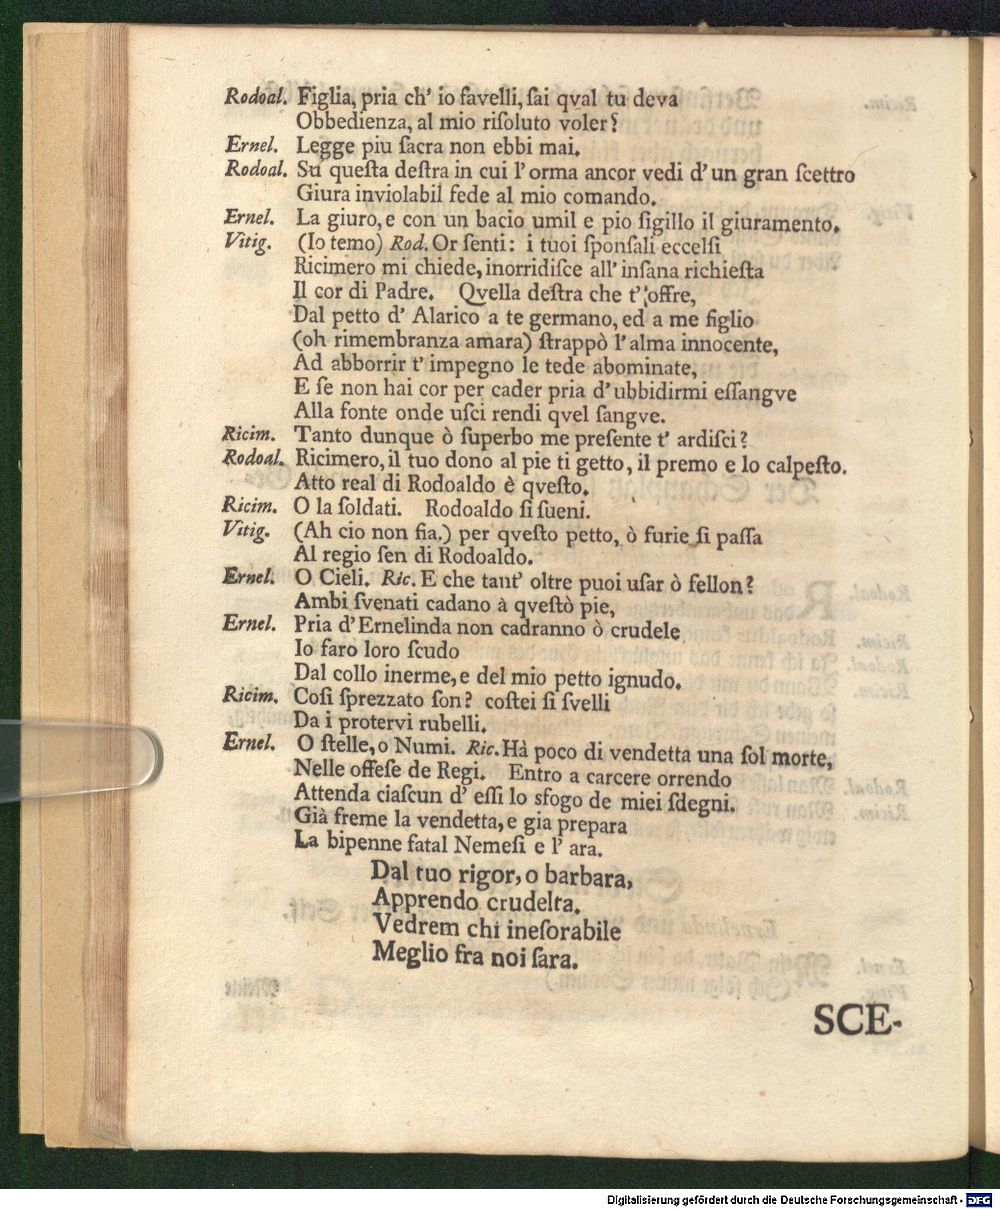 Rodoal. Figlia, pria ch' io favelli, ſai qval tu deva
Obbedienza, al mio riſoluto voler?
Ernel. Legge piu ſacra non ebbi mai.
Rodoal. Su queſta deſtra in cui l' orma ancor vedi d' un gran ſcettro
Giura inviolabil fede al mio comando.
Ernel. La giuro, e con un bacio umil e pio ſigillo il giuramento.
Vitig. (Io temo) Rod. Or ſenti: i tuoi ſponſali eccelſi
Ricimero mi chiede, inorridiſce all' inſana richieſta
Il cor di Padre. Qvella deſtra che t' offre,
Dal petto d' Alarico a te germano, ed a me figlio
(oh rimembranza amara) ſtrappò l' alma innocente,
Ad abborrir t' impegno le tede abominate,
E ſe non hai cor per cader pria d' ubbidirmi eſſangve
Alla fonte onde uſci rendi qvel ſangve.
Ricim. Tanto dunque ò ſuperbo me preſente t' ardiſci?
Rodoal. Ricimero, il tuo dono al pie ti getto, il premo e lo calpeſto.
Atto real di Rodoaldo è qveſto.
Ricim. O la ſoldati. Rodoaldo ſi ſueni.
Vitig. (Ah cio non fia.) per qveſto petto, ò furie ſi paſſa
Al regio ſen di Rodoaldo.
Ernel. O Cieli. Ric. E che tant' oltre puoi uſar ò fellon?
Ambi ſvenati cadano à qveſtò pie,
Ernel. Pria d' Ernelinda non cadranno ò crudele
Io faro loro ſcudo
Dal collo inerme, e del mio petto ignudo.
Ricim. Coſi ſprezzato ſon? coſtei ſi ſvelli
Da i protervi rubelli.
Ernel. O ſtelle, o Numi. Ric. Hà poco di vendetta una ſol morte,
Nelle offeſe de Regi. Entro a carcere orrendo
Attenda ciaſcun d' eſſi lo sfogo de miei ſdegni.
Già freme la vendetta, e gia prepara
La bipenne fatal Nemeſi e l' ara.
Dal tuo rigor, o barbara,
Apprendo crudelta.
Vedrem chi ineſorabile
Meglio fra noi ſara.
SCE-
Digitalisierung gefördert durch die Deutsche Forschungsgemeinschaft - DFG